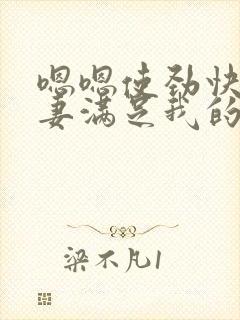 嗯嗯使劲快
妻满足我的
梁不凡1